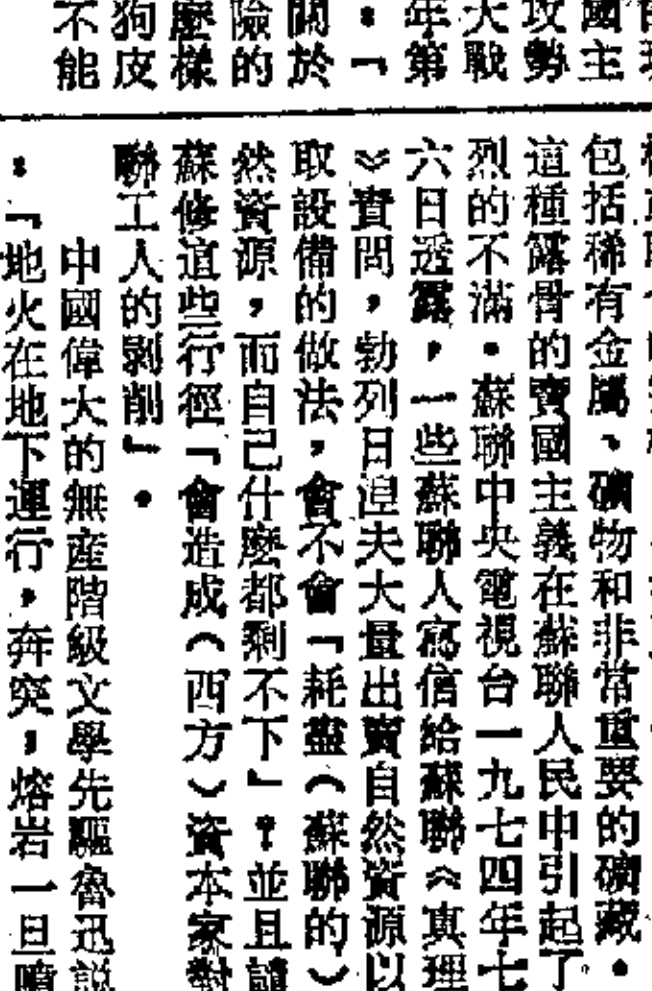 國主
攻勢
大戰
年第
：「
關於
險的
麼樣
狗皮
不能
包括稀有金屬、礦物和非常重要的礦藏。
這種露骨的賣國主義在蘇聯人民中引起了
烈的不滿。蘇聯中央電視台一九七四年七
六日透露，一些蘇聯人寫信給蘇聯《真理
》質問，勃列日涅夫大量出賣自然資源以
取設備的做法，會不會「耗盡（蘇聯的）
然資源，而自己什麼都剩不下」？並且
蘇修這些行徑「會造成（西方）資本家對
聯工人的剝削」。
中國偉大的無產階級文學先驅魯迅說
：「地火在地下運行，奔突；熔岩一旦噴